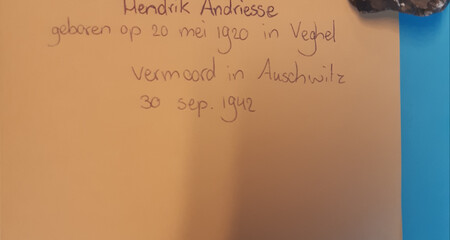 Hendrik Andriesse
geboren op 20 mei 1920 in Veghel
vermoord in Auschwitz
30 sep. 1942